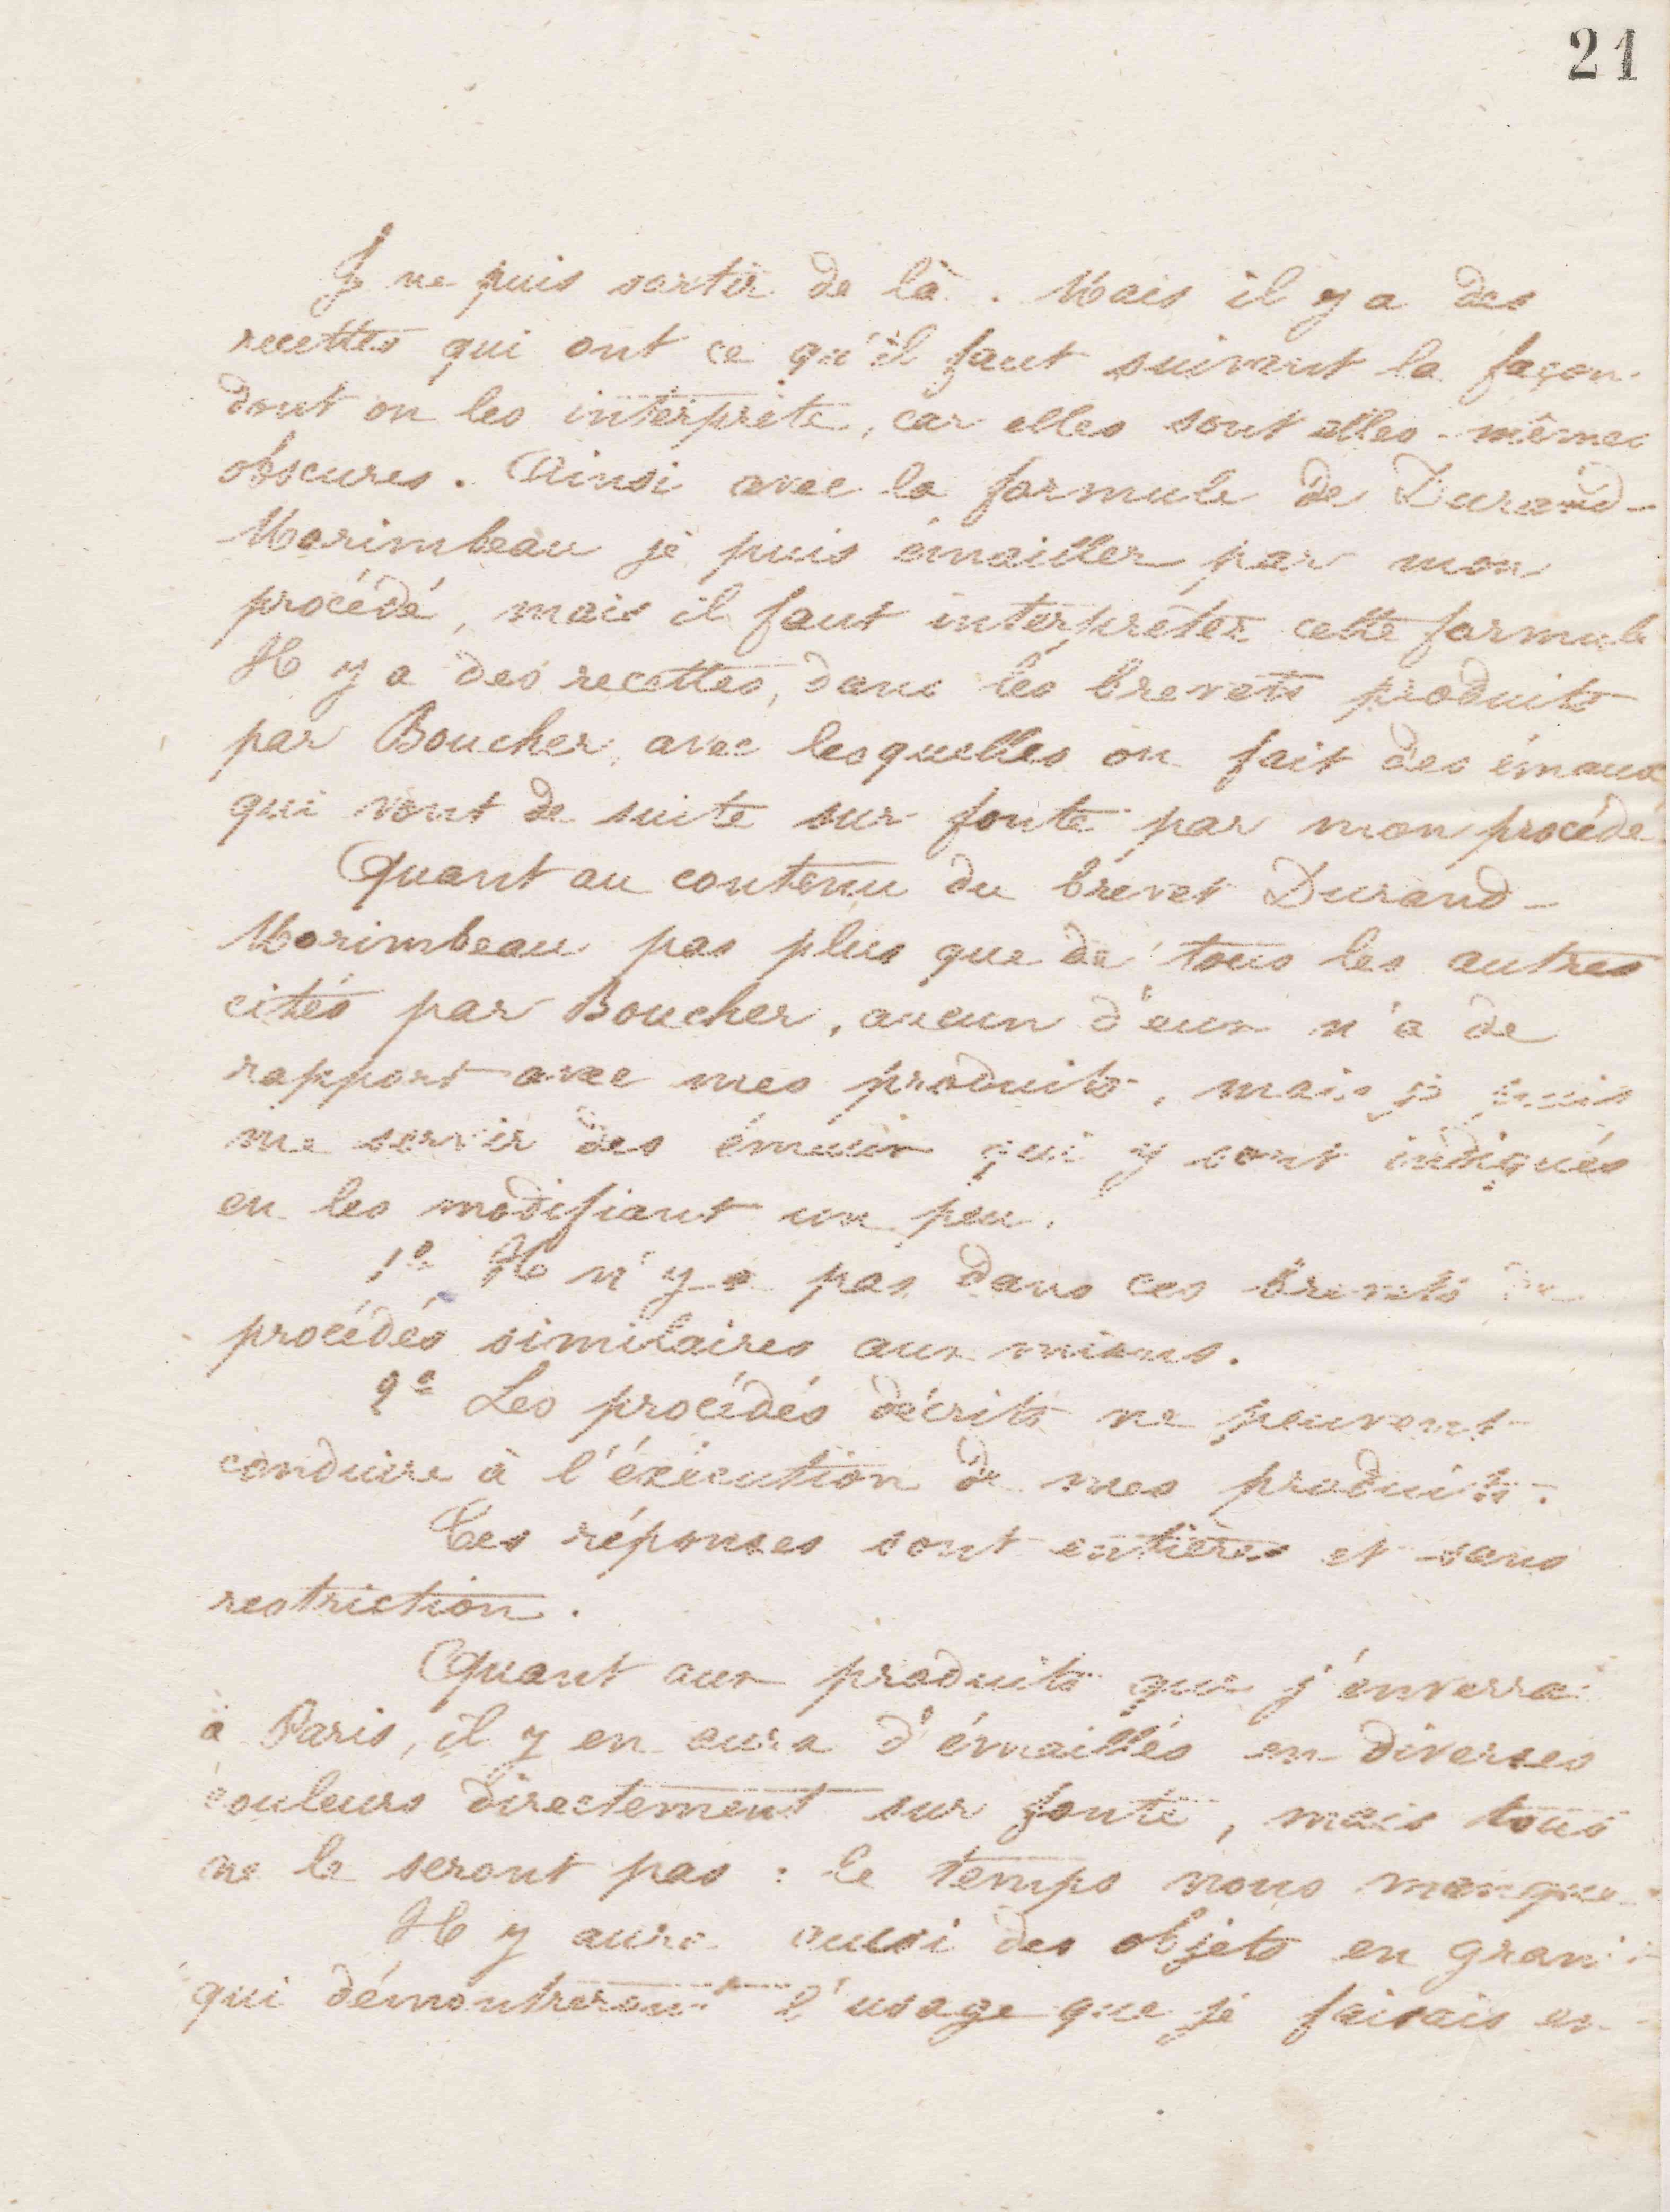 21
Je ne puis sortir de là. Mais il y a des
recettes qui ont ce qu'il faut suivant la façon
dont on les interprète, car elles sont elles-mêmes
obscures. Ainsi avec la formule de Durand-
Morimbeau je puis émailler par mon
procédé, mais il faut interpréter cette formule
Il y a des recettes, dans les brevets produits
par Boucher, avec lesquelles on fait des émaux
qui vont de suite sur fonte par mon procédé
Quant au contenu du brevet Durand-
Morimbeau pas plus que de tous les autres
cités par Boucher, aucun d'eux n'a de
rapport avec mes produits, mais je puis
me servir des émaux qui y sont indiqués
en les modifiant un peu.
1° Il n'y a pas dans ces brevets de
procédés similaires aux miens.
2° Les procédés décrits ne peuvent
conduire à l'exécution de mes produits.
Ces réponses sont entières et sans
restriction.
Quant aux produits que j'enverrai
à Paris, il y en aura d'émaillés en diverses
couleurs directement sur fonte, mais tous
ne le seront pas : le temps nous manque.
Il y aura aussi des objets en
qui démontreront l'usage que je faisais en